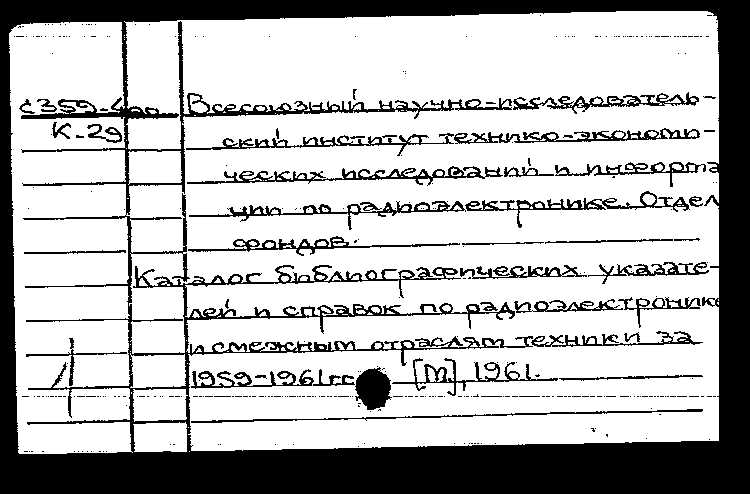 с359-4до Всесоюзный научно-исследователь-
К-29 ский институт технико-экономи-
ческих исследований и информа
ции по радиоэлектронике. Отдел
фондов.
Каталог библиографических указате-
лей и справок по радиоэлектронике
и смежным отраслям техники за
1959-1961гг [М], 1961.
1